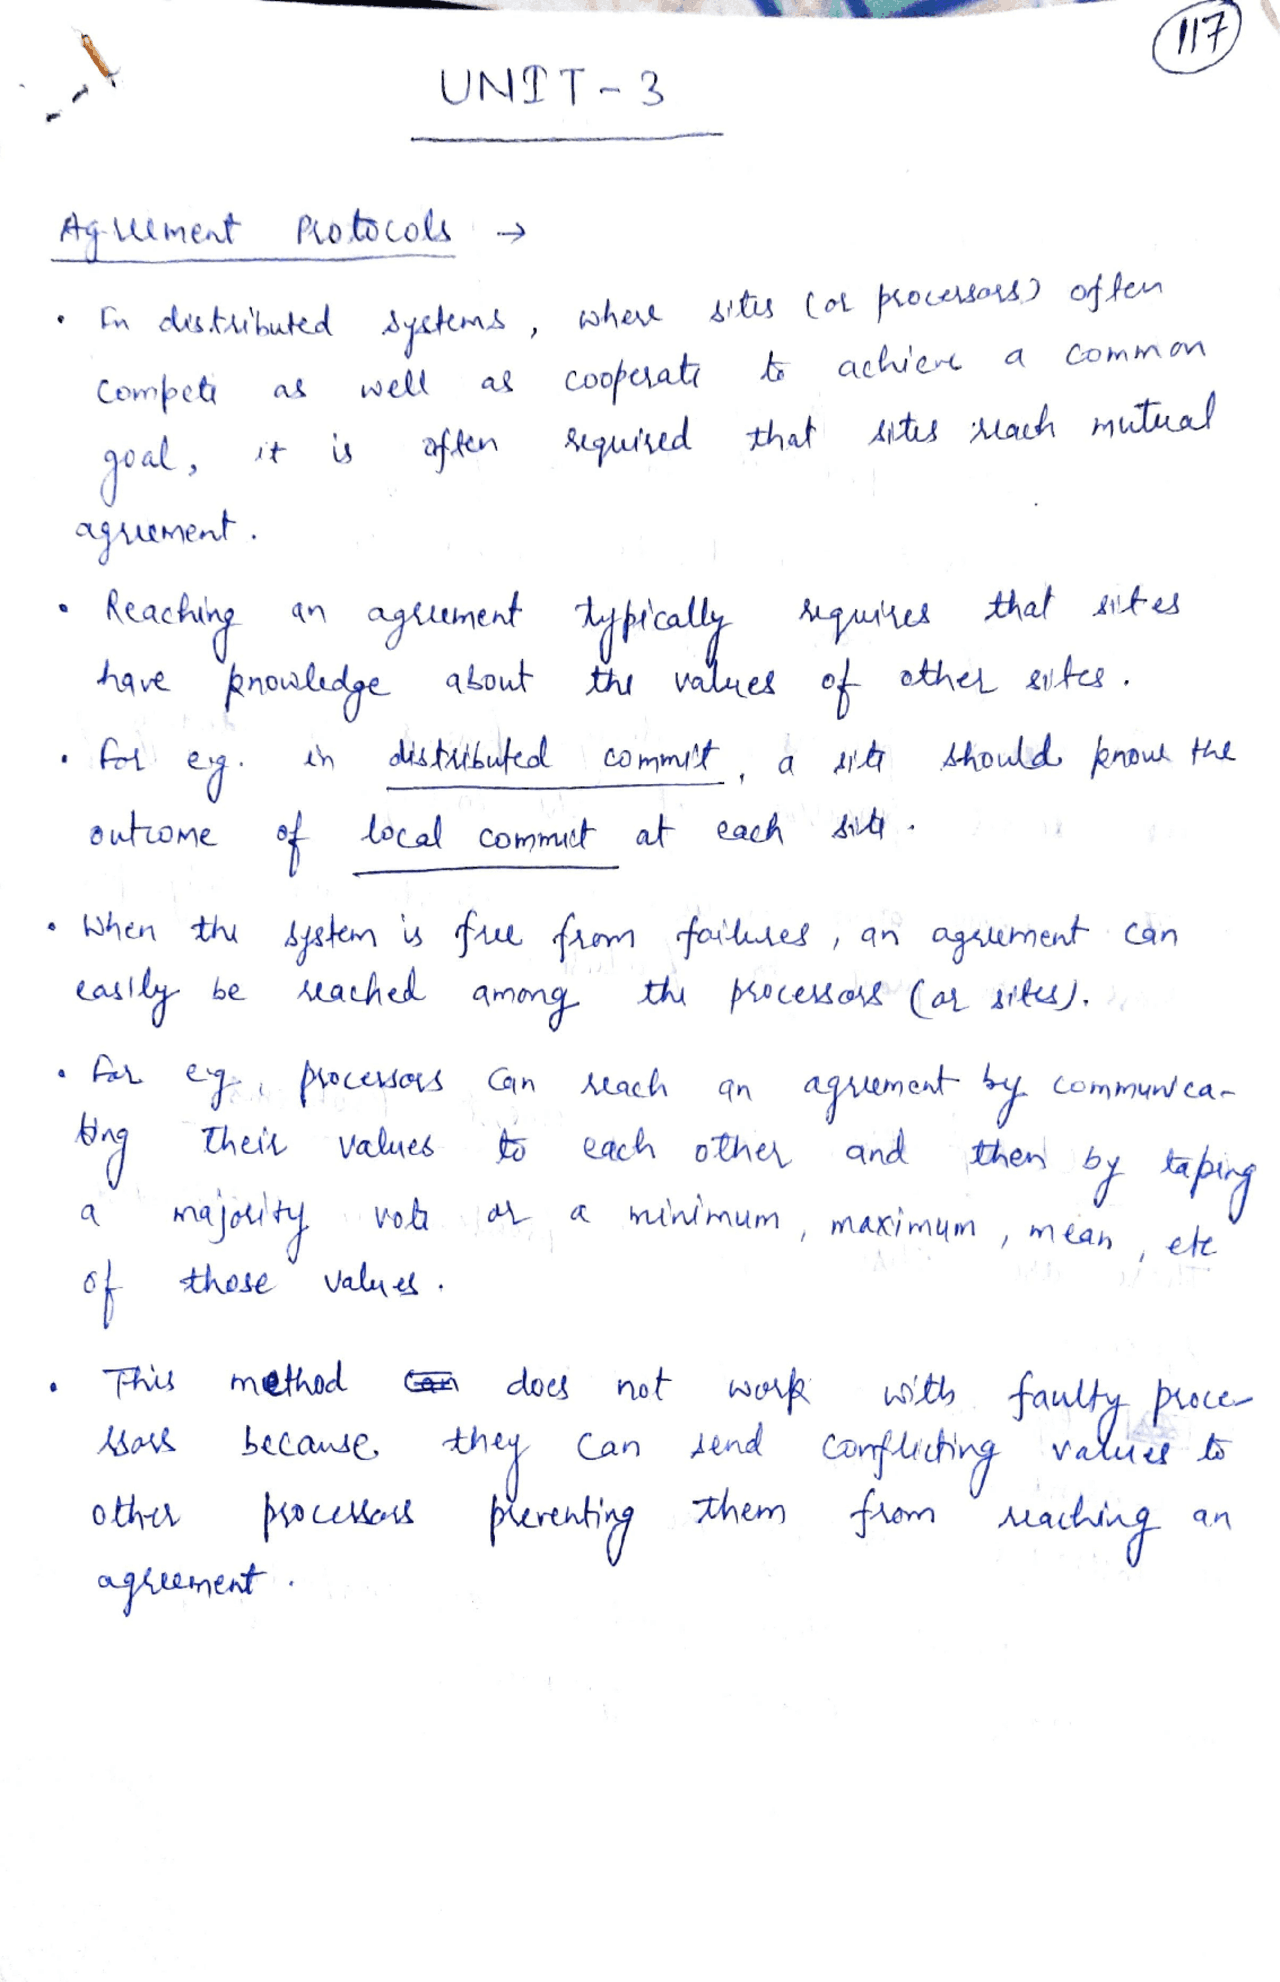 117
UNIT - 3
Agreement Protocols →
• In distributed systems, where sites (or processors) often
compete as well as cooperate to achieve a common
goal, it is often required that sites reach mutual
agreement.
• Reaching an agreement typically requires that sites
have knowledge about the values of other sites.
• For eg. in distributed commit, a site should know the
outcome of local commit at each site.
• When the system is free from failures, an agreement can
easily be reached among the processors (or sites).
• For eg., processors can reach an agreement by communica-
ting their values to each other and then by taking
a majority vote or a minimum, maximum, mean, etc
of those values.
• This method can does not work with faulty proce-
ssors because they can send conflicting values to
other processors preventing them from reaching an
agreement.